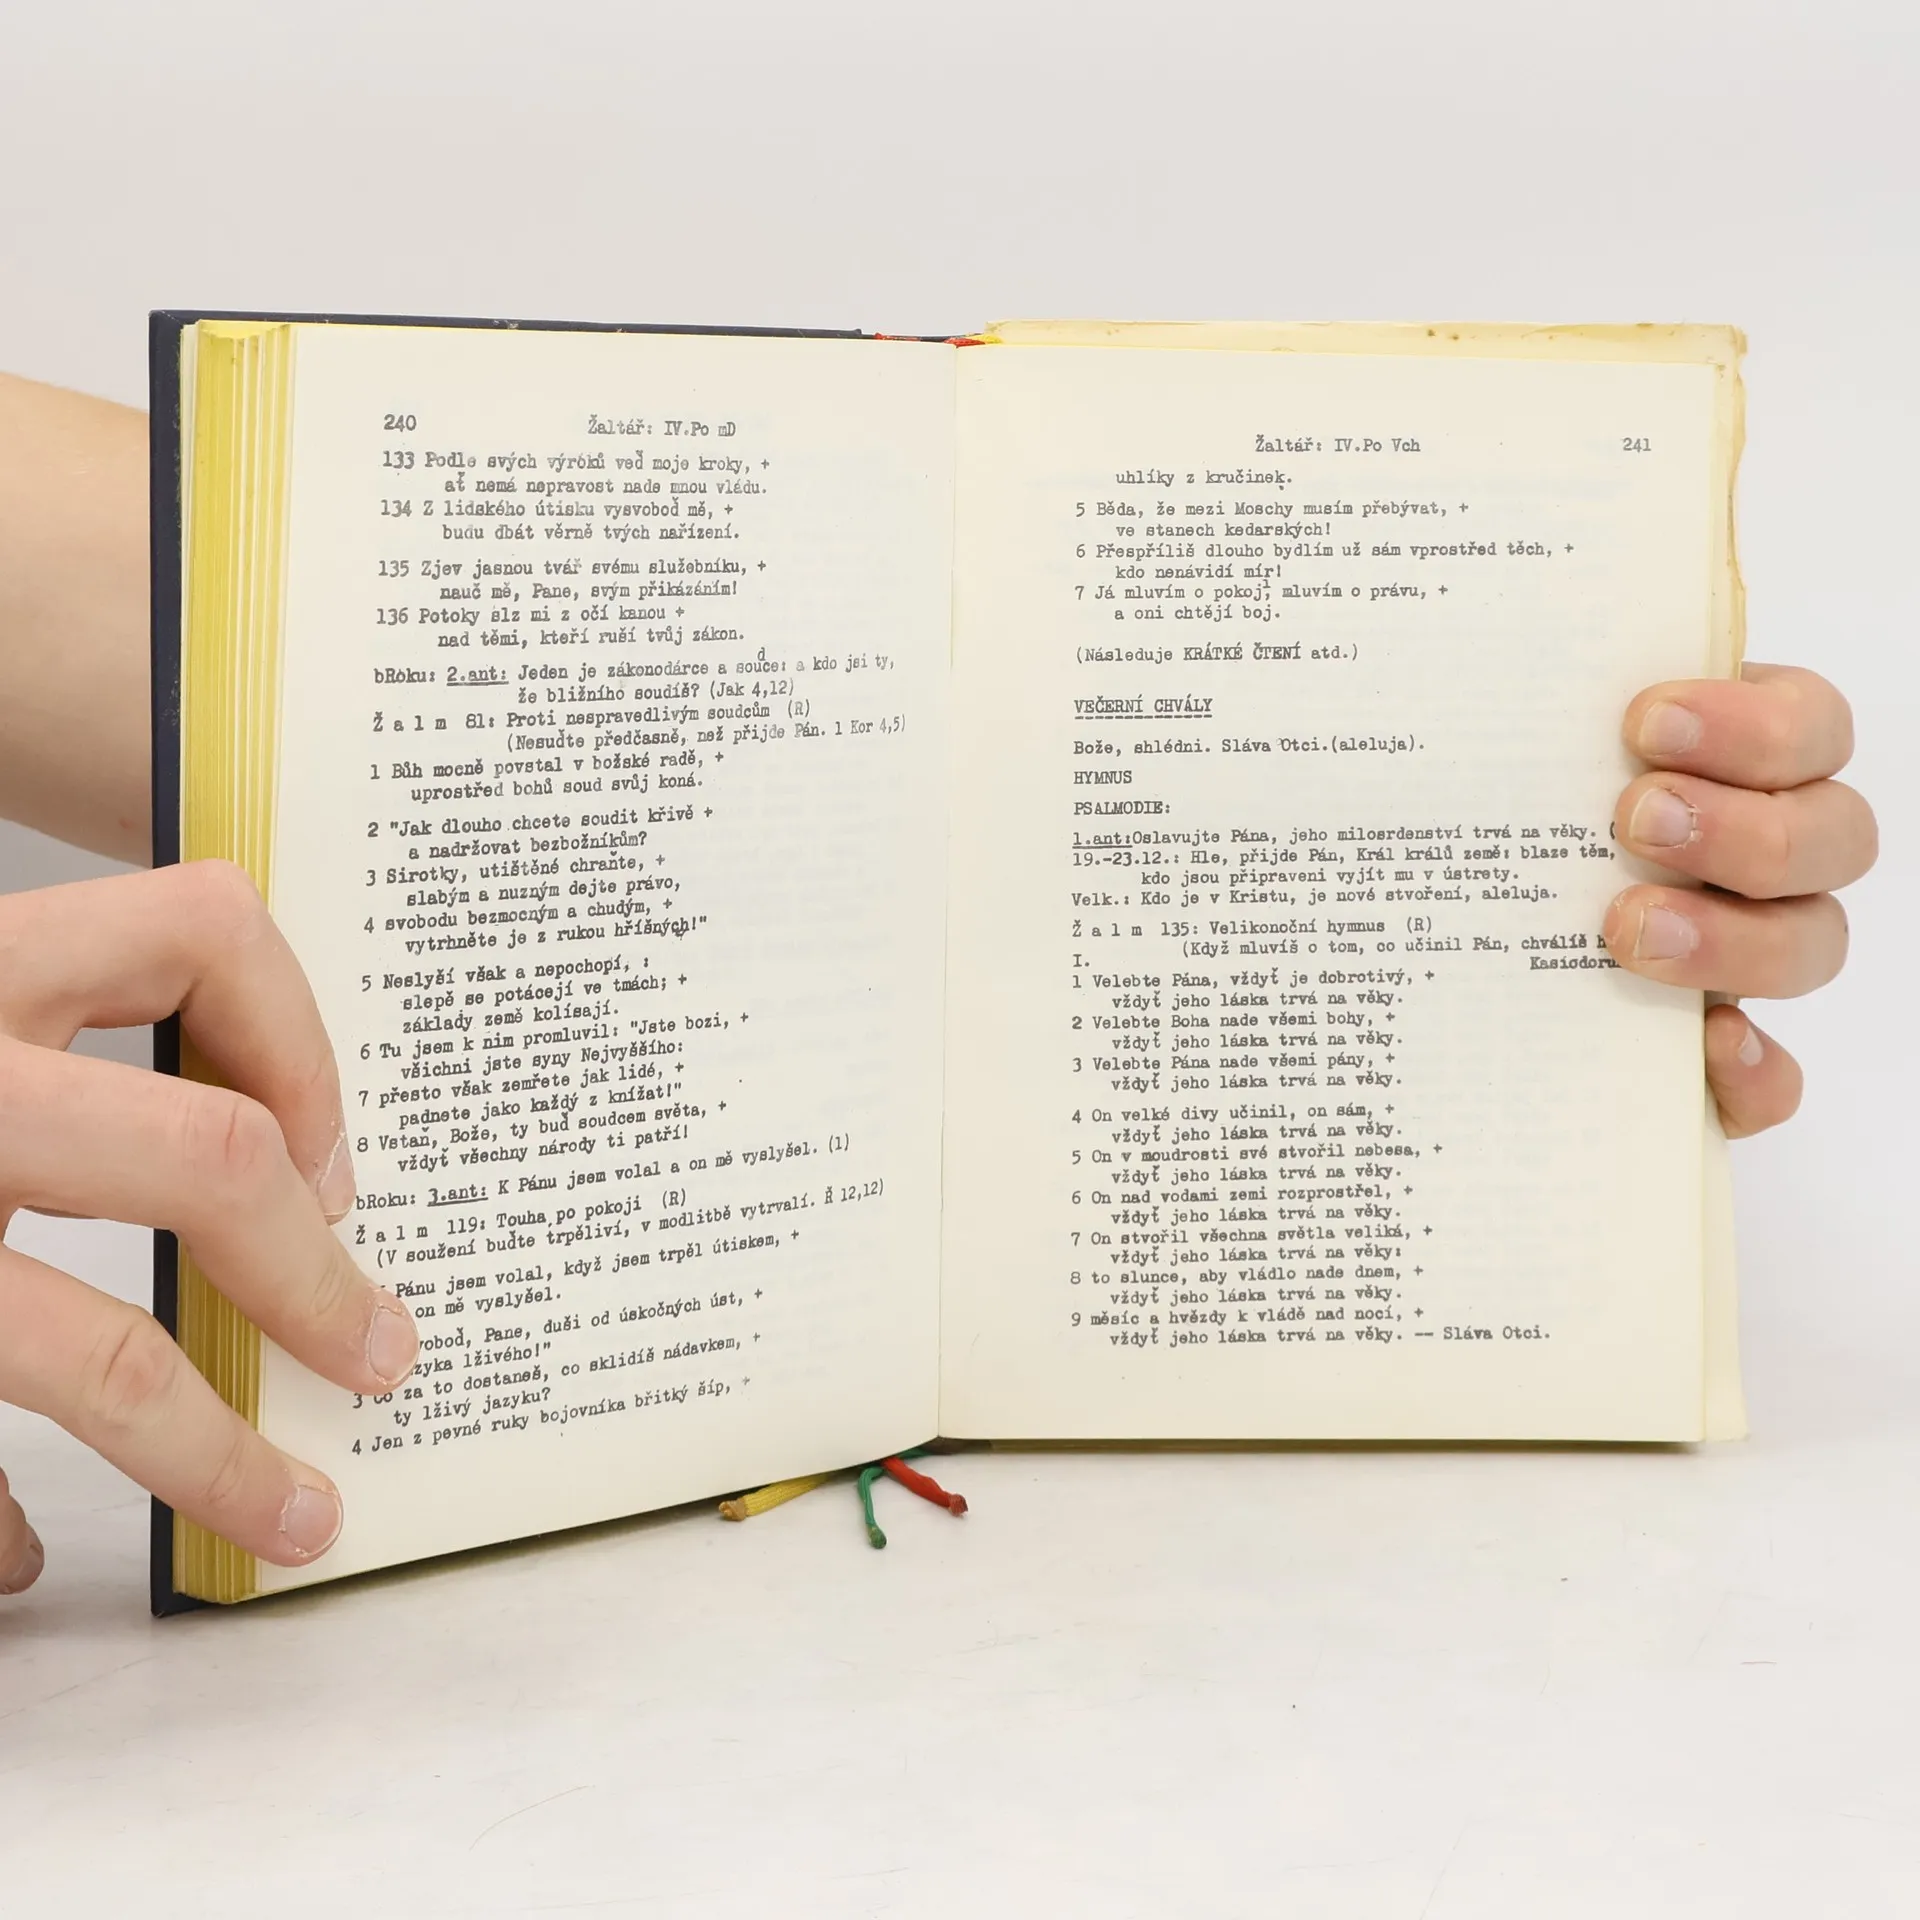 240
Žaltář: IV.Po mD
133 Podle svých výroků veď moje kroky, +
ať nemá nepravost nade mnou vládu.
134 Z lidského útisku vysvoboď mě, +
budu dbát věrně tvých nařízení.
135 Zjev jasnou tvář svému služebníku, +
nauč mě, Pane, svým přikázáním!
136 Potoky slz mi z očí kanou +
nad těmi, kteří ruší tvůj zákon.
bRoku: 2.ant: Jeden je zákonodárce a soudce: a kdo jsi ty,
že bližního soudíš? (Jak 4,12)
Ž a l m 81: Proti nespravedlivým soudcům (R)
(Nesuďte předčasně, než přijde Pán. 1 Kor 4,5)
1 Bůh mocně povstal v božské radě, +
uprostřed bohů soud svůj koná.
2 "Jak dlouho chcete soudit křivě +
a nadržovat bezbožníkům?
3 Sirotky, utištěné chraňte, +
slabým a nuzným dejte právo,
4 svobodu bezmocným a chudým, +
vytrhněte je z rukou hříšných!"
5 Neslyší však a nepochopí, :
slepě se potácejí ve tmách; +
základy země kolísají.
6 Tu jsem k nim promluvil: "Jste bozi, +
všichni jste syny Nejvyššího:
7 přesto však zemřete jak lidé, +
padnete jako každý z knížat!"
8 Vstaň, Bože, ty buď soudcem světa, +
vždyť všechny národy ti patří!
bRoku: 3.ant: K Pánu jsem volal a on mě vyslyšel. (1)
Ž a l m 119: Touha po pokoji (R)
(V soužení buďte trpěliví, v modlitbě vytrvalí. Ř 12,12)
Pánu jsem volal, když jsem trpěl útiskem, +
on mě vyslyšel.
voboď, Pane, duši od úskočných úst, +
zyka lživého!"
3 Co za to dostaneš, co sklidíš nádavkem, +
ty lživý jazyku?
4 Jen z pevné ruky bojovníka břitký šíp, +
Žaltář: IV.Po Vch
241
uhlíky z kručinek.
5 Běda, že mezi Moschy musím přebývat, +
ve stanech kedarských!
6 Přespříliš dlouho bydlím už sám vprostřed těch, +
kdo nenávidí mír!
7 Já mluvím o pokoji, mluvím o právu, +
a oni chtějí boj.
(Následuje KRÁTKÉ ČTENÍ atd.)
VEČERNÍ CHVÁLY
Bože, shlédni. Sláva Otci.(aleluja).
HYMNUS
PSALMODIE:
1.ant:Oslavujte Pána, jeho milosrdenství trvá na věky. (
19.-23.12.: Hle, přijde Pán, Král králů země: blaze těm,
kdo jsou připraveni vyjít mu v ústrety.
Velk.: Kdo je v Kristu, je nové stvoření, aleluja.
Ž a l m 135: Velikonoční hymnus (R)
(Když mluvíš o tom, co učinil Pán, chválíš h
I.
Kasiodoru
1 Velebte Pána, vždyť je dobrotivý, +
vždyť jeho láska trvá na věky.
2 Velebte Boha nade všemi bohy, +
vždyť jeho láska trvá na věky.
3 Velebte Pána nade všemi pány, +
vždyť jeho láska trvá na věky.
4 On velké divy učinil, on sám, +
vždyť jeho láska trvá na věky.
5 On v moudrosti své stvořil nebesa, +
vždyť jeho láska trvá na věky.
6 On nad vodami zemi rozprostřel, +
vždyť jeho láska trvá na věky.
7 On stvořil všechna světla veliká, +
vždyť jeho láska trvá na věky:
8 to slunce, aby vládlo nade dnem, +
vždyť jeho láska trvá na věky.
9 měsíc a hvězdy k vládě nad nocí, +
vždyť jeho láska trvá na věky. -- Sláva Otci.